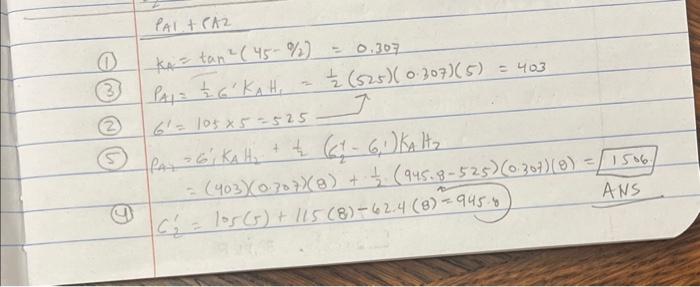 PA1 + PA2
① KA = tan²(45 - φ/2) = 0.307
③ PA1 = 1/2 σ' KA H1 = 1/2 (525)(0.307)(5) = 403
② σ' = 105 x 5 = 525
⑤ PA2 = σ1' KA H2 + 1/2 (σ2' - σ1') KA H2
= (403)(0.307)(8) + 1/2 (945.8 - 525)(0.307)(8) = 1506
ANS
④ σ2' = 105(5) + 115(8) - 62.4(8) = 945.8